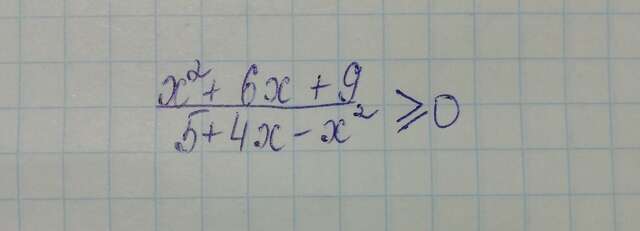 x²+ 6x + 9
5+4x-x² ⩾0